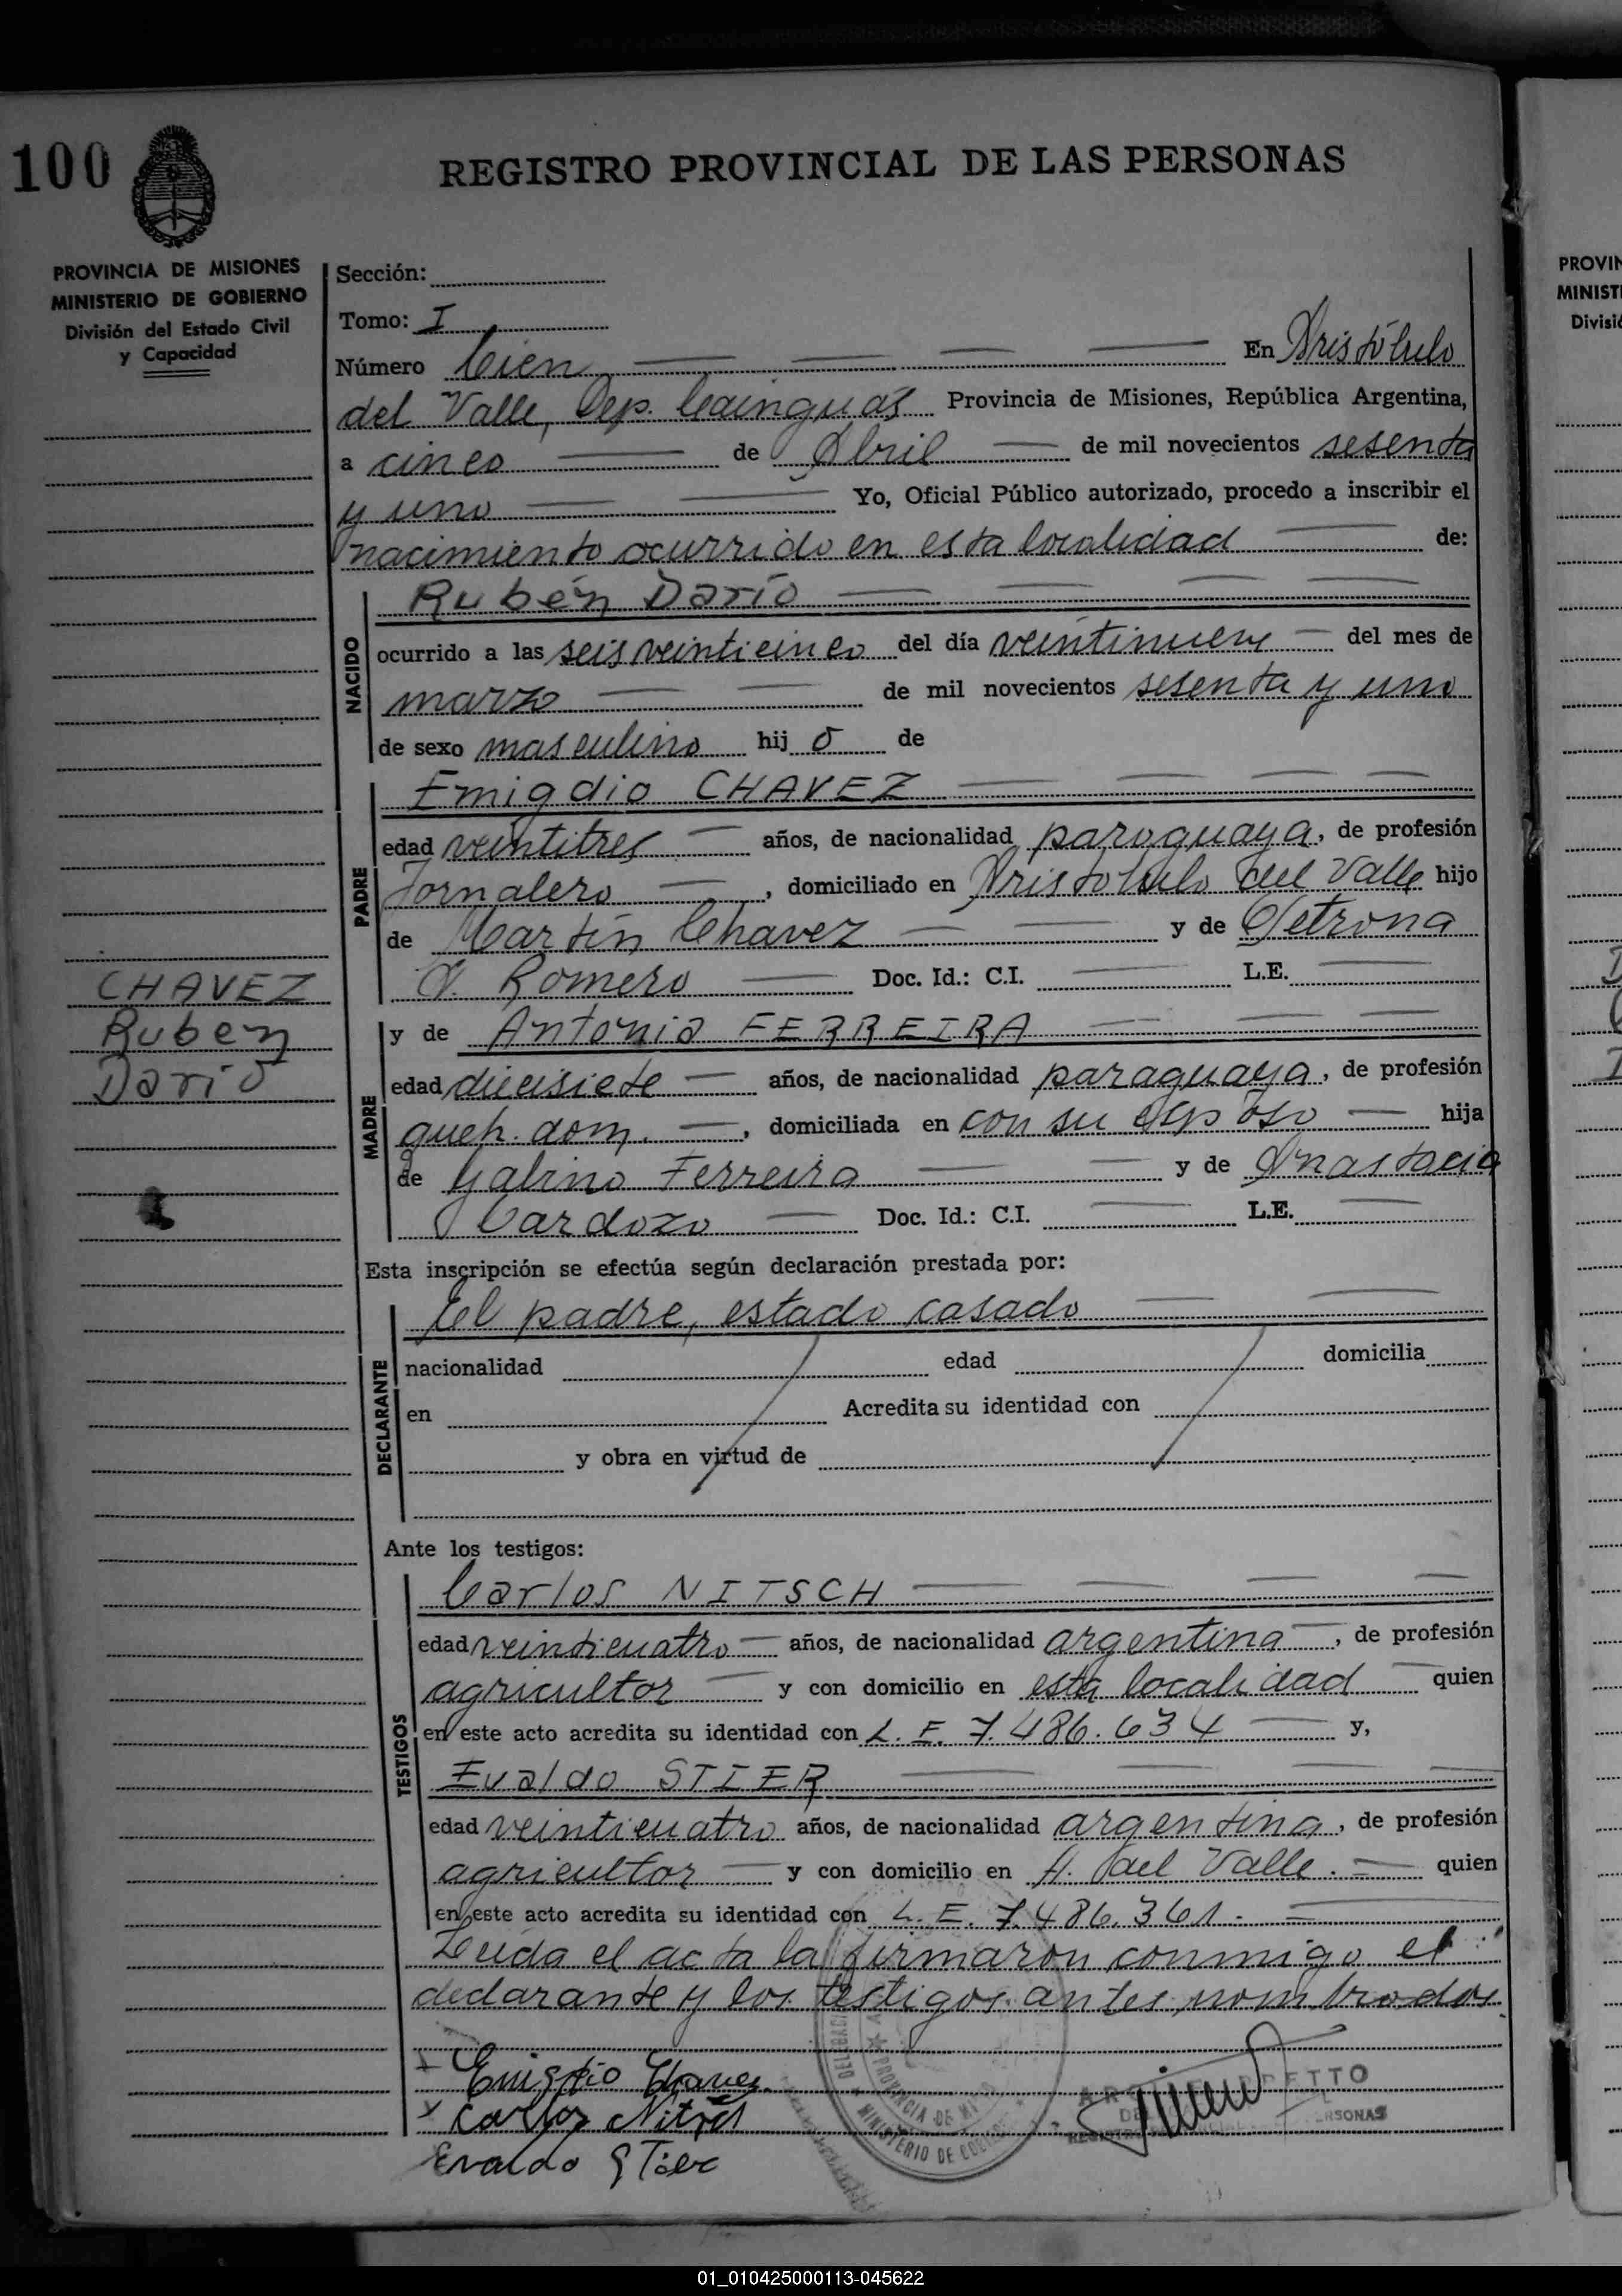 100
REGISTRO PROVINCIAL DE LAS PERSONAS
PROVINCIA DE MISIONES
MINISTERIO DE GOBIERNO
División del Estado Civil
y Capacidad
Sección:
Tomo: I
Número Cien En Aristóbulo
del Valle, Dep. Cainguás Provincia de Misiones, República Argentina,
a cinco de Abril de mil novecientos sesenta
y uno Yo, Oficial Público autorizado, procedo a inscribir el
nacimiento ocurrido en esta localidad de:
NACIDO
Rubén Darío
ocurrido a las seis veinticinco del día veintinueve del mes de
marzo de mil novecientos sesenta y uno
de sexo masculino hij o de
PADRE
Emigdio CHAVEZ
edad veintitres años, de nacionalidad paraguaya, de profesión
Jornalero, domiciliado en Aristobulo del Valle hijo
de Martín Chavez y de Petrona
Romero Doc. Id.: C.I. L.E.
CHAVEZ
Ruben
Dario
MADRE
y de Antonia FERREIRA
edad diecisiete años, de nacionalidad paraguaya, de profesión
queh. dom., domiciliada en con su esposo hija
de Galino Ferreira y de Anastacia
Cardozo Doc. Id.: C.I. L.E.
Esta inscripción se efectúa según declaración prestada por:
DECLARANTE
El padre, estado casado
nacionalidad edad domicilia
en Acredita su identidad con
y obra en virtud de
Ante los testigos:
TESTIGOS
Carlos NITSCH
edad veinticuatro años, de nacionalidad argentina, de profesión
agricultor y con domicilio en esta localidad quien
en este acto acredita su identidad con L. E. 7.486.634 y,
Evaldo STIER
edad veinticuatro años, de nacionalidad argentina, de profesión
agricultor y con domicilio en A. del Valle. quien
en este acto acredita su identidad con L. E. 7.486.361.
Leída el acta la firmaron conmigo el
declarante y los testigos antes nombrados.
Emigdio Chavez
Carlos Nitsch
Evaldo Stier
PROVINCIA DE
MINISTERIO DE
01_010425000113-045622